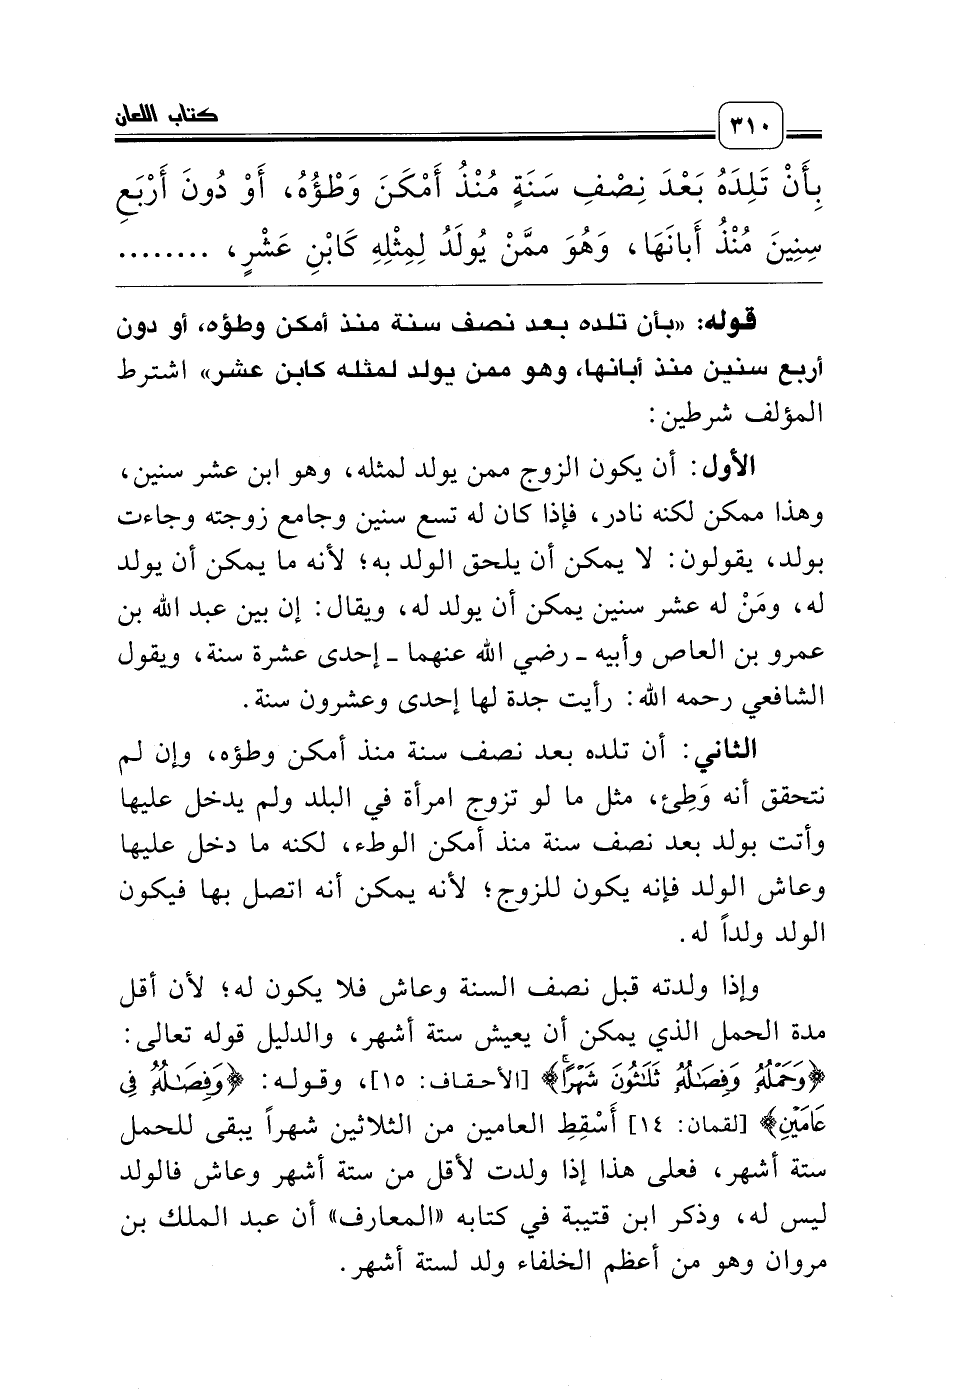 كتاب اللعان
٣١٠
بِأَنْ تَلِدَهُ بَعْدَ نِصْفِ سَنَةٍ مُنْذُ أَمْكَنَ وَطْؤُهُ، أَوْ دُونَ أَرْبَعِ
سِنِينَ مُنْذُ أَبَانَهَا، وَهُوَ مِمَّنْ يُولَدُ لِمِثْلِهِ كَابْنِ عَشْرٍ، ........
قوله: «بأن تلده بعد نصف سنة منذ أمكن وطؤه، أو دون
أربع سنين منذ أبانها، وهو ممن يولد لمثله كابن عشر» اشترط
المؤلف شرطين:
الأول: أن يكون الزوج ممن يولد لمثله، وهو ابن عشر سنين،
وهذا ممكن لكنه نادر، فإذا كان له تسع سنين وجامع زوجته وجاءت
بولد، يقولون: لا يمكن أن يلحق الولد به؛ لأنه ما يمكن أن يولد
له، ومَنْ له عشر سنين يمكن أن يولد له، ويقال: إن بين عبد الله بن
عمرو بن العاص وأبيه ـ رضي الله عنهما ـ إحدى عشرة سنة، ويقول
الشافعي رحمه الله: رأيت جدة لها إحدى وعشرون سنة.
الثاني: أن تلده بعد نصف سنة منذ أمكن وطؤه، وإن لم
نتحقق أنه وَطِئ، مثل ما لو تزوج امرأة في البلد ولم يدخل عليها
وأتت بولد بعد نصف سنة منذ أمكن الوطء، لكنه ما دخل عليها
وعاش الولد فإنه يكون للزوج؛ لأنه يمكن أنه اتصل بها فيكون
الولد ولداً له.
وإذا ولدته قبل نصف السنة وعاش فلا يكون له؛ لأن أقل
مدة الحمل الذي يمكن أن يعيش ستة أشهر، والدليل قوله تعالى:
﴿وَحَمْلُهُۥ وَفِصَٰلُهُۥ ثَلَٰثُونَ شَهْرًاۚ﴾ [الأحقاف: ١٥]، وقوله: ﴿وَفِصَٰلُهُۥ فِى
عَامَيْنِ﴾ [لقمان: ١٤] أَسْقِطِ العامين من الثلاثين شهراً يبقى للحمل
ستة أشهر، فعلى هذا إذا ولدت لأقل من ستة أشهر وعاش فالولد
ليس له، وذكر ابن قتيبة في كتابه «المعارف» أن عبد الملك بن
مروان وهو من أعظم الخلفاء ولد لستة أشهر.